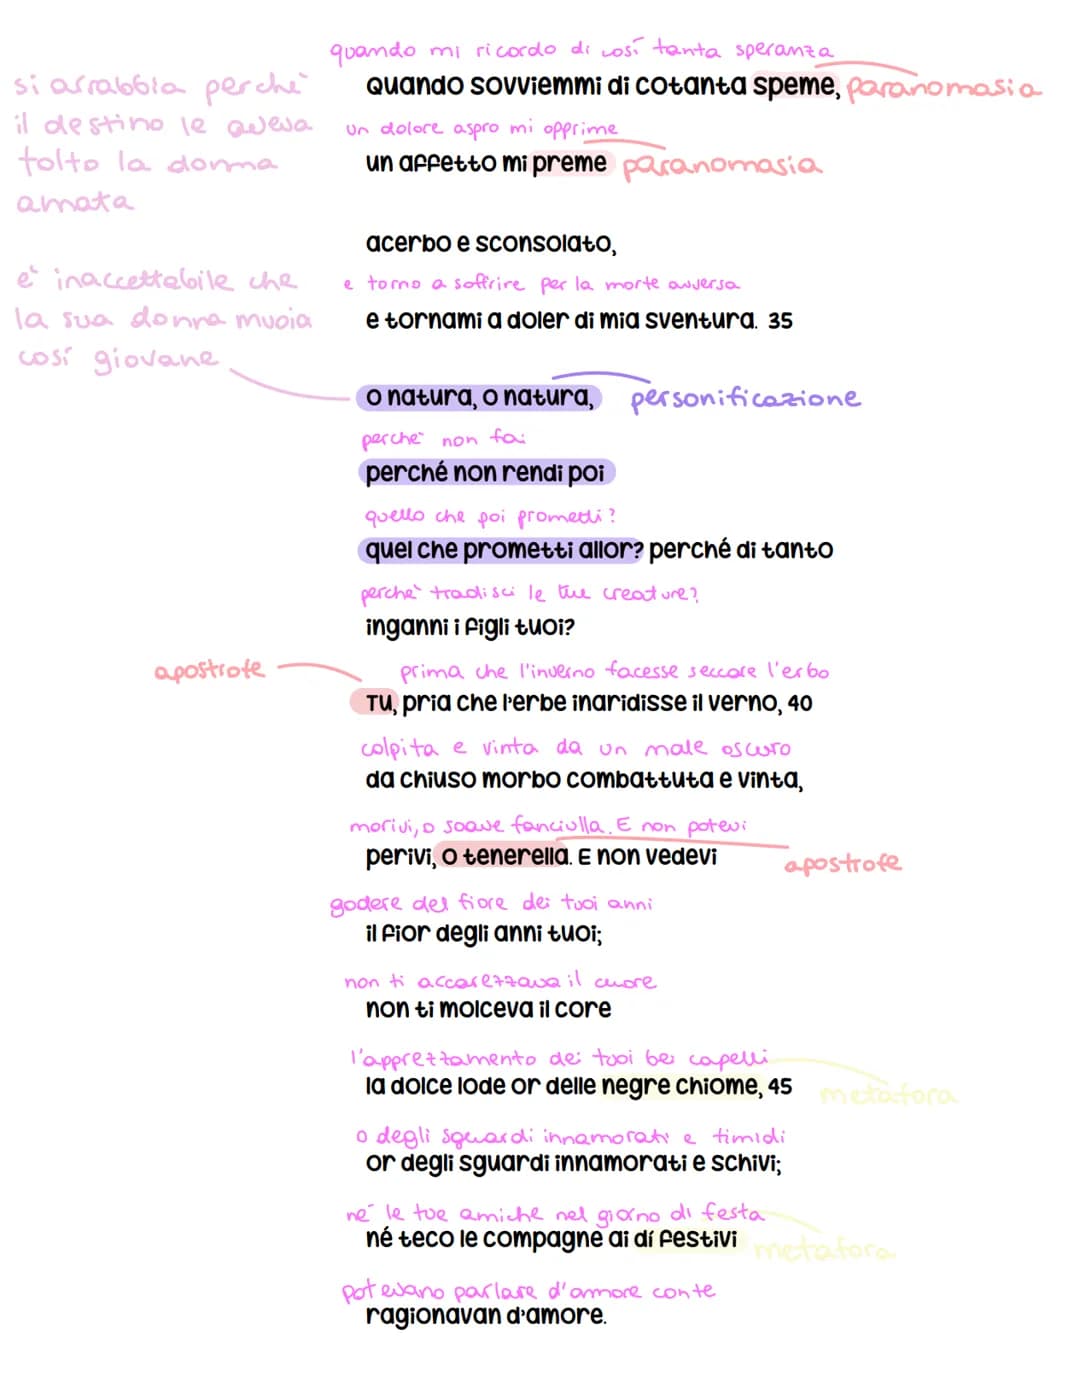 quando mi ricordo di così tanta speranza
quando sovviemmi di cotanta speme, paranomasia
si arrabbia perchè
il destino le aveva
tolto la donna
amata
un dolore aspro mi opprime
un affetto mi preme paranomasia
acerbo e sconsolato,
è inaccettabile che
la sua donna muoia
così giovane
e torno a soffrire per la morte avversa
e tornami a doler di mia sventura. 35
o natura, o natura, personificazione
perchè non fai
perché non rendi poi
quello che poi prometti?
quel che prometti allor? perché di tanto
perchè tradisci le tue creature?
inganni i figli tuoi?
apostrofe
prima che l'inverno facesse seccare l'erbo
Tu, pria che l'erbe inaridisse il verno, 40
colpita e vinta da un male oscuro
da chiuso morbo combattuta e vinta,
morivi, o soave fanciulla. E non potevi
perivi, o tenerella. E non vedevi
apostrofe
godere del fiore dei tuoi anni
il fior degli anni tuoi;
non ti accarezzava il cuore
non ti molceva il core
l'apprezzamento dei tuoi bei capelli
la dolce lode or delle negre chiome, 45
metafora
o degli sguardi innamorati e timidi
or degli sguardi innamorati e schivi;
nè le tue amiche nel giorno di festa
né teco le compagne ai dí festivi
metafora
potevano parlare d'amore conte
ragionavan d'amore.